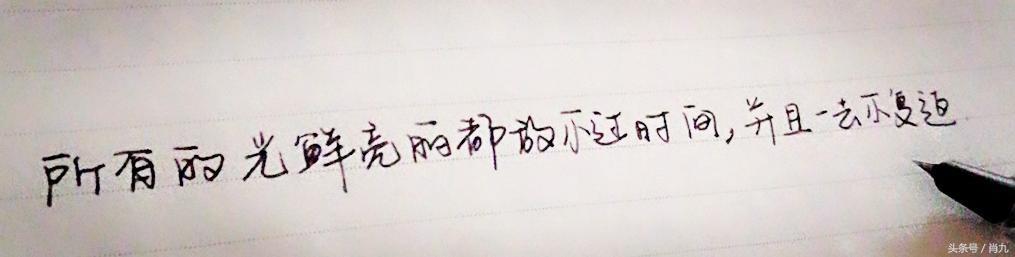 所有的光鲜亮丽都敌不过时间,并且一去不复返
头条号 / 肖九